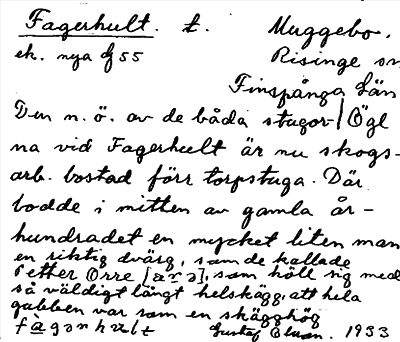 Fagerhult. t. Muggebo.
ek. nya Risinge sn
Finspånga Län
Den n. ö. av de båda stugor- Ögl
na vid Fagerhult är nu skogs-
arb. bostad förr torpstuga. Där
bodde i mitten av gamla år-
hundradet en mycket liten man
en riktig dvärg, som de kallade
Petter Orre [], som höll sig med
så väldigt långt helskägg, att hela
gubben var som en skägghög
Gustaf 1933